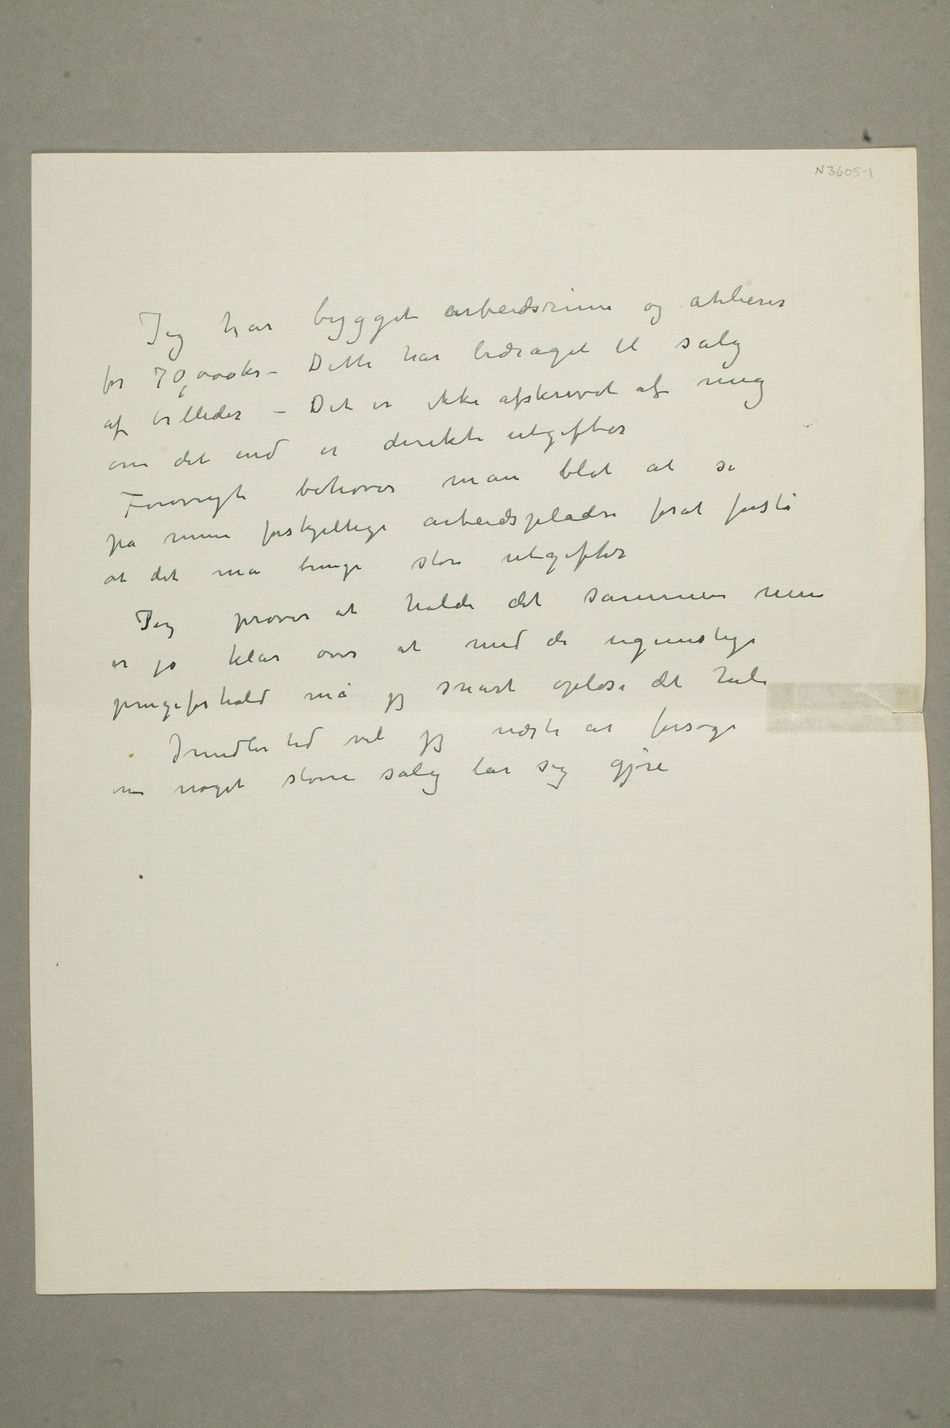 N3605-1
Jeg har bygget arbeidsrum og atelierer
for 70,000kr – Dette har bidraget til salg
af billeder – Det er ikke afskrevet af mig
om det end er direkte utgifter
Forøvrigt behøver man blot at se
på mine forskjellige arbeidspladse forat forstå
at det må bringe store utgifter
Jeg prøver at holde det sammen men
er jo klar over at med de ugunstige
pengeforhold må jeg snart opløse det hele
Imidlertid vil jeg næste år forsøge
om noget større salg lar sig gjøre